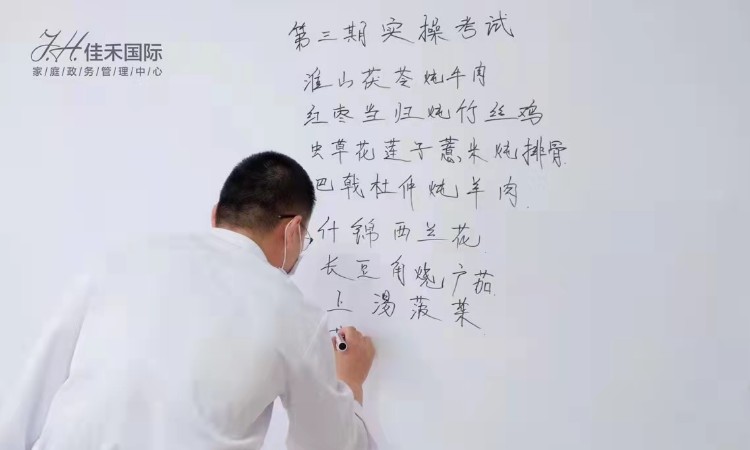 J.H. 佳禾国际
家/庭/政/务/管/理/中/心
第三期实操考试
淮山茯苓炖牛肉
红枣当归炖竹丝鸡
虫草花莲子薏米炖排骨
巴戟杜仲炖羊肉
什锦西兰花
长豆角烧广茄
上汤菠菜